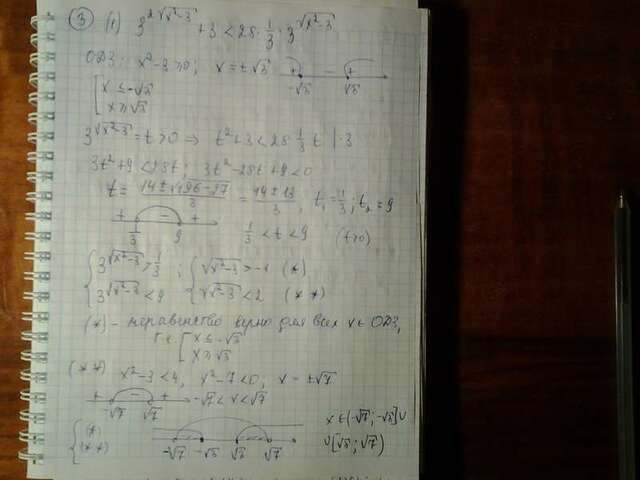 ③ (1) 3^{2√(x²-3)} + 3 < 28 · 1/3 · 3^{√(x²-3)}
ОДЗ: x²-3 ≥ 0; x = ±√3 + - + -√3 √3
[ x ≤ -√3
x ≥ √3
3^{√(x²-3)} = t > 0 ⇒ t² + 3 < 28 · 1/3 t | · 3
3t² + 9 < 28t; 3t² - 28t + 9 < 0
t = (14 ± √(196-27))/3 = (14 ± 13)/3; t₁ = 1/3; t₂ = 9
+ - + 1/3 9 1/3 < t < 9 (t>0)
{ 3^{√(x²-3)} > 1/3 ; { √(x²-3) > -1 (*)
3^{√(x²-3)} < 9 √(x²-3) < 2 (**)
(*) - неравенство верно для всех x ∈ ОДЗ,
т.к. [ x ≤ -√3
x ≥ √3
(**) x²-3 < 4, x²-7 < 0; x = ±√7
+ - + -√7 √7 -√7 < x < √7
{ (*)
(**) -√7 -√3 √3 √7
x ∈ (-√7; -√3] ∪
∪ [√3; √7)